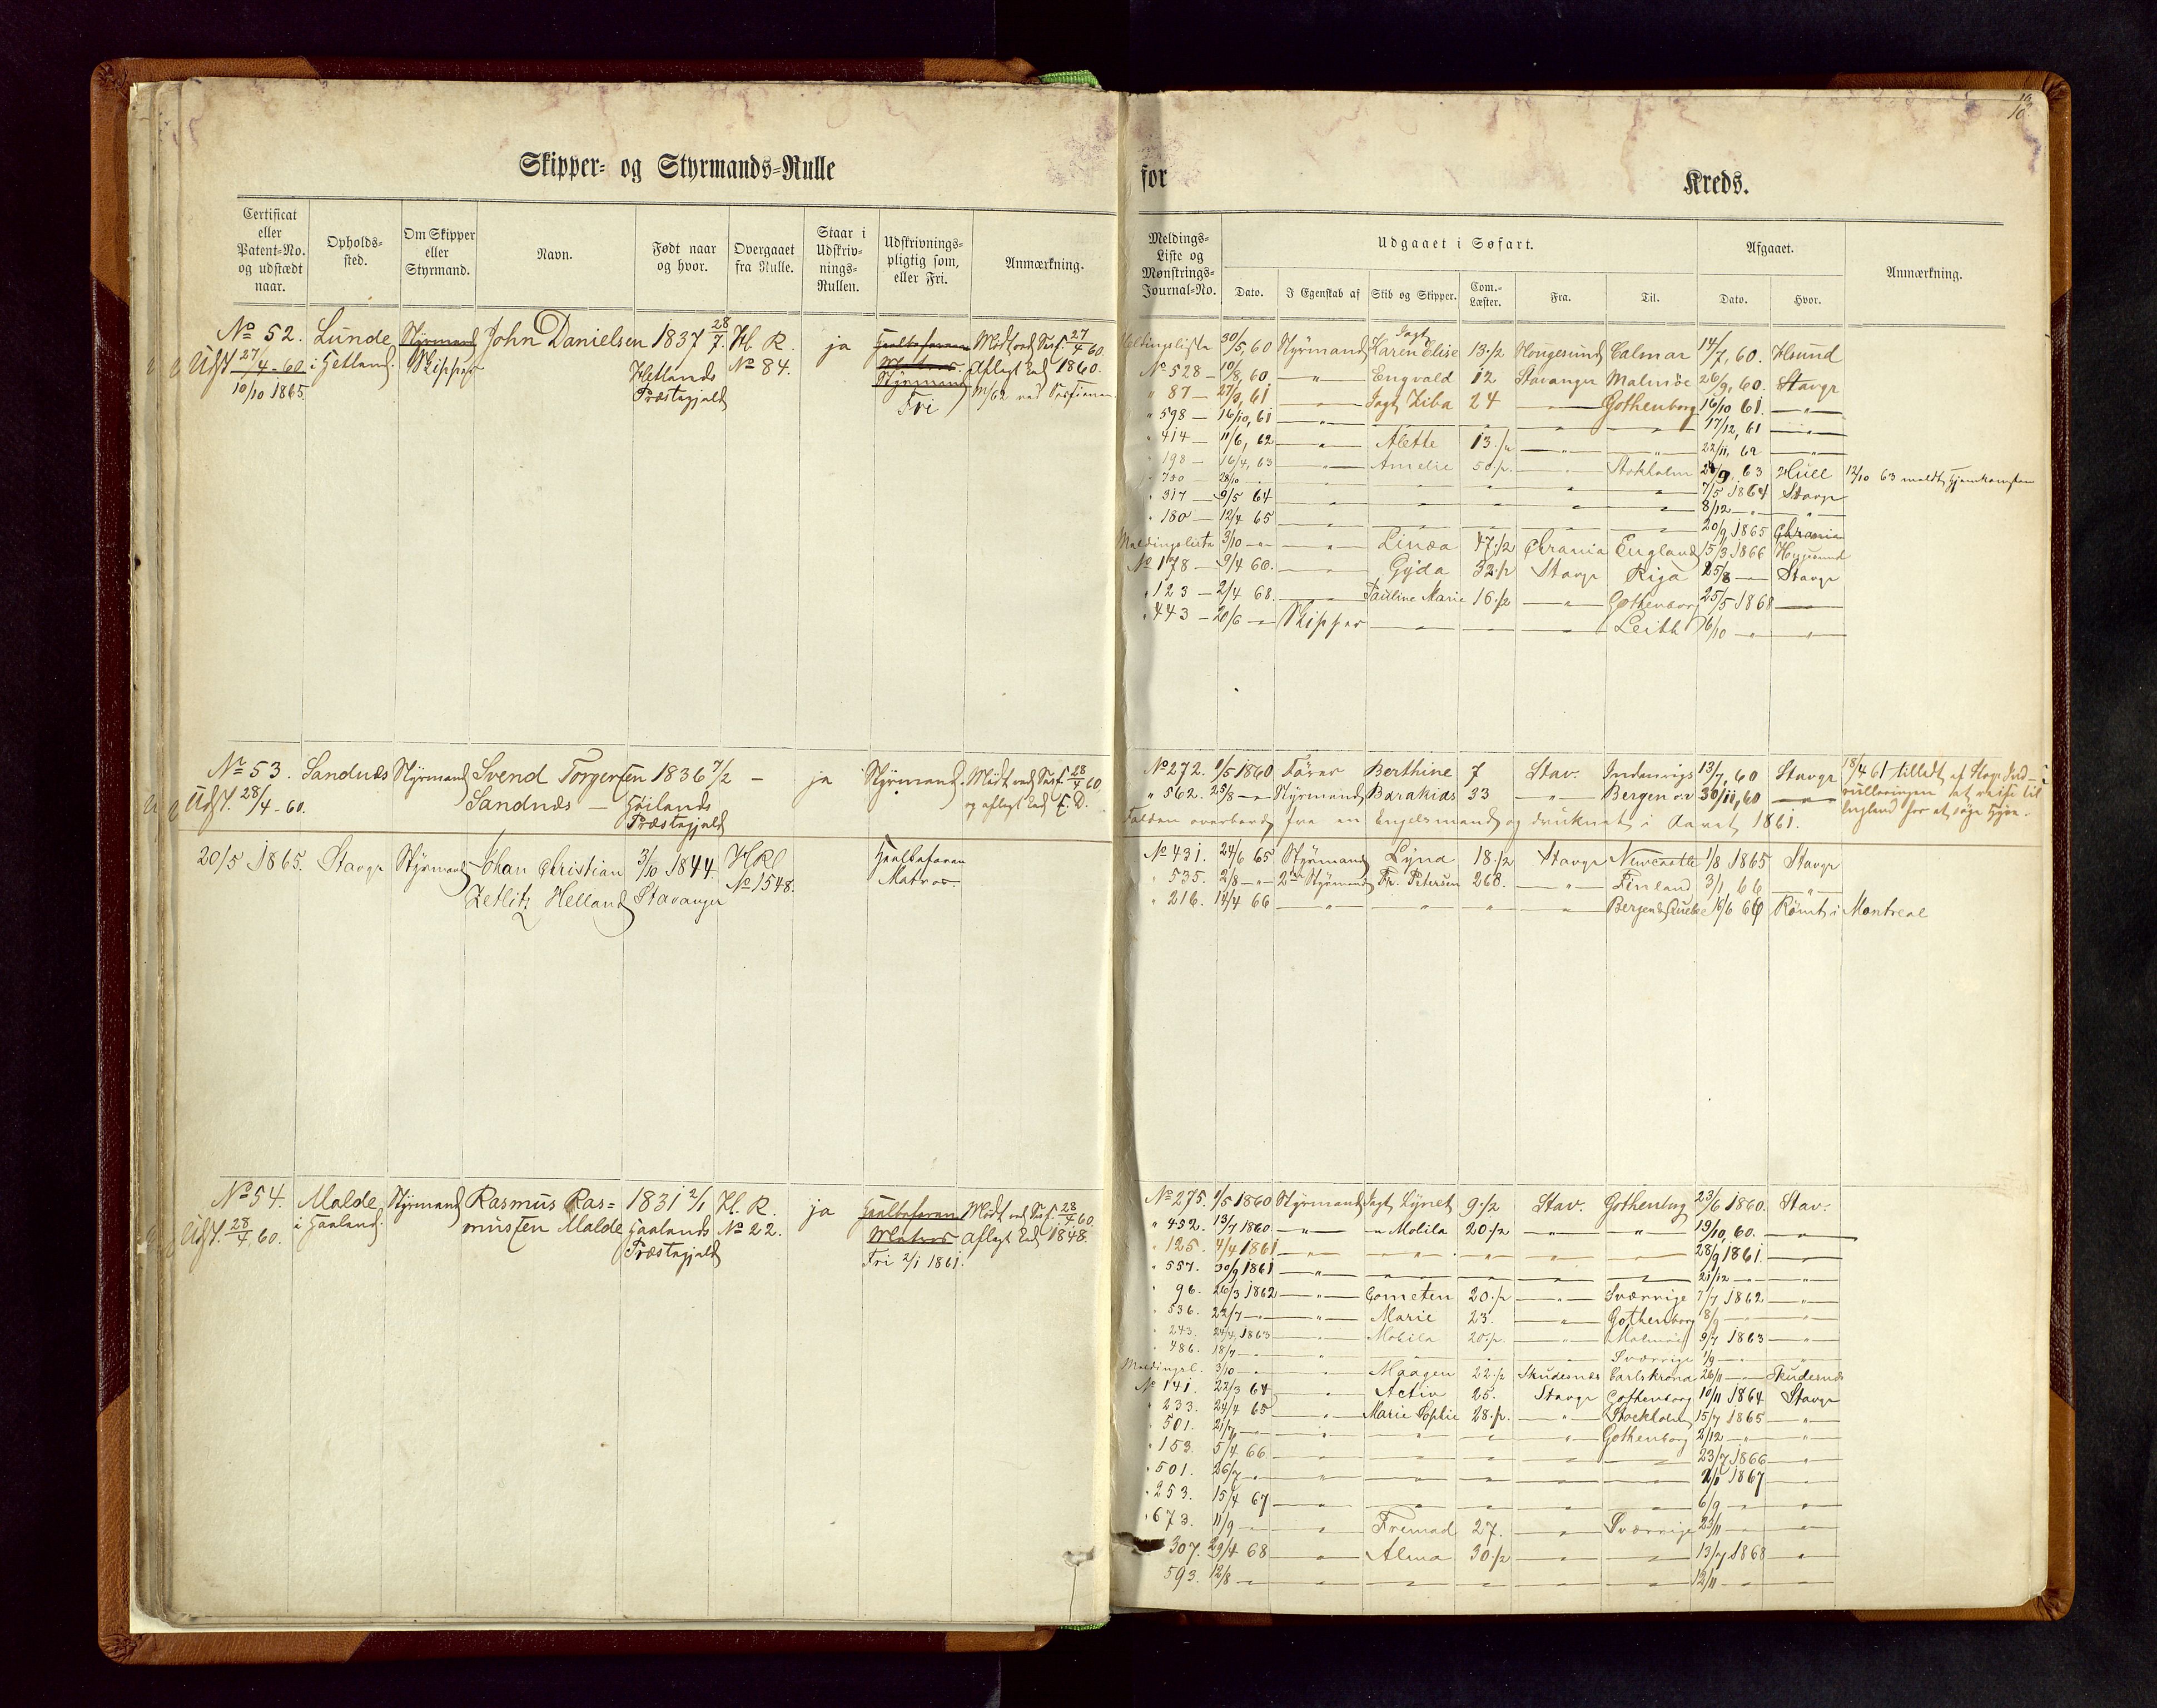 Skipper- og Styrmands-Rulle
for
Kreds.
10
Certificat eller Patent-No. og udstædt naar.
Opholds-sted.
Om Skipper eller Styrmand.
Navn.
Født naar og hvor.
Overgaaet fra Rulle.
Staar i Udskriv-nings-Rullen.
Udskrivnings-pligtig som, eller Fri.
Anmærkning.
Meldings-Liste og Mønstrings-Journal-No.
Udgaaet i Søfart.
Dato.
I Egenskab af
Skib og Skipper.
Com.-Læster.
Fra.
Til.
Afgaaet.
Dato.
Hvor.
Anmærkning.
No 52. Lunde Styrmand John Danielsen 1837 28/7. Hl. R. ja Søelbefaren Mødt ved Sess. 27/4 60
Udst 27/4-60. i Hetland. Skipper Hetlands No 84. Matros Aflagt Eed 1860.
10/10 1865. Præstegjeld Styrmand
Fri
Meldingsliste 30/5, 60 Styrmand Jagt Karen Elise 13 1/2 Hougesund Calmar 14/7, 60. Hsund
No 528 — 10/8, 60 — " — Engvald 12 Stavanger Malmöe 26/9, 60. Stavgr
" 87 — 27/3, 61 — Jagt Ziba 24 — " — Gothenborg 16/10 61. — " —
" 598 — 16/10, 61 — " — — — — — 17/12, 61 — " —
" 414 — 11/6, 62 — " — Alette 13 1/2 — " — — " — 22/11, 62 — " —
" 198 — 16/4, 63 — " — Amelie 50 1/2 — " — Stokholm 28/9 63 Hull 12/10 63 meldt Hjemkomsten
" 750 — 28/10 — — — — — — 7/5 1864 Stavgr
" 317 — 9/5 64 — — — — — 8/12 — " — "
" 180 — 12/4 65 — — — — — 20/9 1865 Chrania
Meldingsliste 3/10 — " — " — Linea 47 1/2 Chrania England 15/3 1866 Hougesund
No 178 — 9/4 60. — " — Gyda 32 1/2 Stavgr Riga 25/8 — Stavgr
" 123 — 2/4 68. — Pauline Marie 16 1/2 — " — Gothenborg 25/5 1868 —
" 443 — 20/6 — " Skipper — — — Leith 6/10 — " — "
No 53. Sandnæs Styrmand Svend Torgersen 1836 7/2 — ja Styrmand. Mødt ved Sess. 28/4 60
Udst. 28/4-60. Sandnæs — Høilands og aflagt Eed E. D.
Præstegjeld
No 272. 1/5 1860 Fører Berthine 7 Stav. Indenrigs 13/7, 60 Stavgr 18/4 61 tilladt af Stavgr Ind-
" 562. 25/8 — " Styrmand Barakias 33 — " — Bergen o.v 30/11, 60 — " — rulleringen at reise til
Falden overbord fra en Engelsmand og druknet i Aaret 1861. England for at søge Hyre.
20/5 1865. Stavgr Styrmand Johan Christian 3/10 1844. HRl Søelbefaren
Zetlitz Helland Stavanger No 1548. Matros.
No 431. 24/6 65 Styrmand Lyna 18 1/2 Stavgr Newcastle 1/8 1865 Stavgr
" 535. 2/8 — " — 2den Styrmand Fr. Petersen 268. — " — Finland 3/1, 66 — " —
" 216. 14/4 66 — " — " — " — " — Bergen & Quebec 16/6 66 Rømt i Montreal
No 54. Malde Styrmand Rasmus Ras= 1831 2/1 Hl. R. ja Søelbefaren Mødt ved Sess. 28/4 60.
Udst. 28/4, 60. i Haaland. musen Malde Haalands No 22. Matros aflagt Eed 1848.
Præstegjeld Fri 2/1 1861.
No 275. 1/5 1860 Styrmand Jagt Lynet 9 1/2 Stav. Gothenbrg 23/6 1860. Stav.
" 452. 13/7 1860. — " — " Molila 20 1/2 — " — — " — 19/10, 60. — " —
" 125. 4/4 1861 — " — — — — — 28/9 1861. — " —
" 557. 30/9 1861 — " — — — — — 21/12 — " — — " —
" 96. 26/3 1862 — " — Cometen 20 1/2 — " — Sværrige 7/7 1862 — " —
" 536. 22/7 — " — — " — Marie 23. — " — Gothenborg 8/9 — — " —
" 243. 24/4, 1863 — " — Molila 20 1/2. — " — Malmöe 9/7 1863 — " —
" 486. 18/7 — " — — — — Sværrige 1/9 — " — "
Meldingsl. 3/10 — " — " — Maagen 22 1/2 Skudesnes Carlskrona 26/11 — Skudesnes
No 141. 22/3 64 — " — Activ 25. Stavgr Gothenborg 10/11 1864 Stavgr
" 233. 24/4 65 — " — Marie Sophie 28 1/2. — " — Stockholm 15/7 1865 — " —
" 501. 21/7 — " — " — — — " — Gothenborg 2/12 — " — "
" 153. 5/4 66 — " — — — — — 23/7 1866 — " —
" 501. 26/7 — " — " — — — — 1867 — " —
" 253. 15/4 67 — " — — — — — 6/9 — " — "
" 673. 11/9 — " — " — Fremad 27. — " — Sværrige 23/11 — " — "
307. 29/4 68 — " — Alma 30 1/2 — " — — 13/7 1868 — " —
593. 12/8 — " — " — — — — — 12/11 — " — "